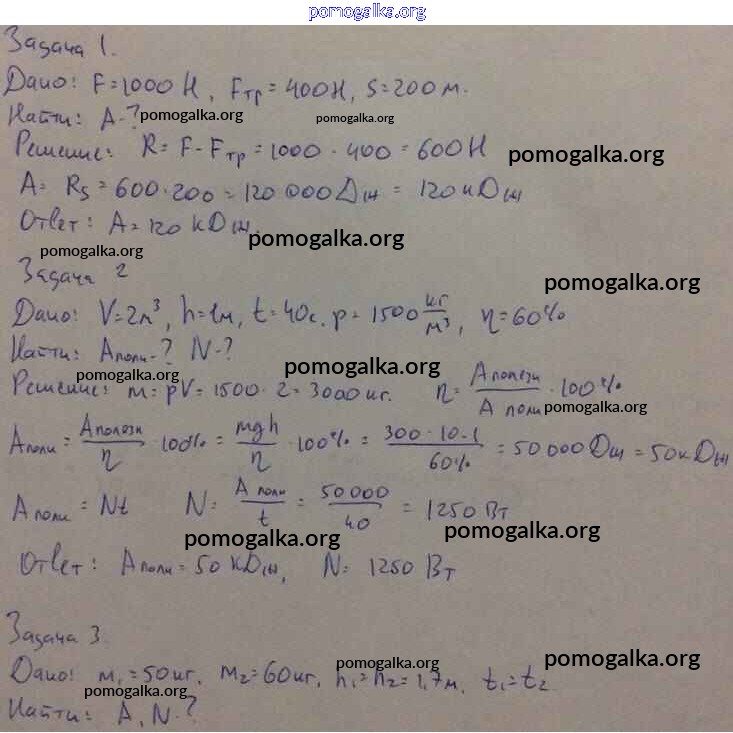 pomogalka.org
Задача 1.
Дано: F=1000 Н, Fтр=400Н, S=200 м.
Найти: A-? pomogalka.org pomogalka.org
Решение: R= F-Fтр=1000-400=600Н pomogalka.org
A= Rs=600·200=120 000 Дж = 120кДж
Ответ: A=120 кДж. pomogalka.org
pomogalka.org
Задача 2 pomogalka.org
Дано: V=2м³, h=1м, t=40с. p=1500 кг/м³, η=60%
Найти: Aполн-? N-? pomogalka.org
Решение: m=pV=1500·2=3000кг. η= Aполезн/A полн ·100% pomogalka.org
Aполн = Aполезн/η ·100% = mgh/η ·100% = 300·10·1/60% = 50 000Дж = 50кДж
A полн = Nt N= A полн/t = 50000/40 = 1250 Вт
pomogalka.org pomogalka.org
Ответ: Aполн=50 кДж, N= 1250 Вт
Задача 3.
Дано: m₁=50кг, m₂=60кг, h₁=h₂=1,7м, t₁=t₂ pomogalka.org pomogalka.org
pomogalka.org
Найти: A, N-?